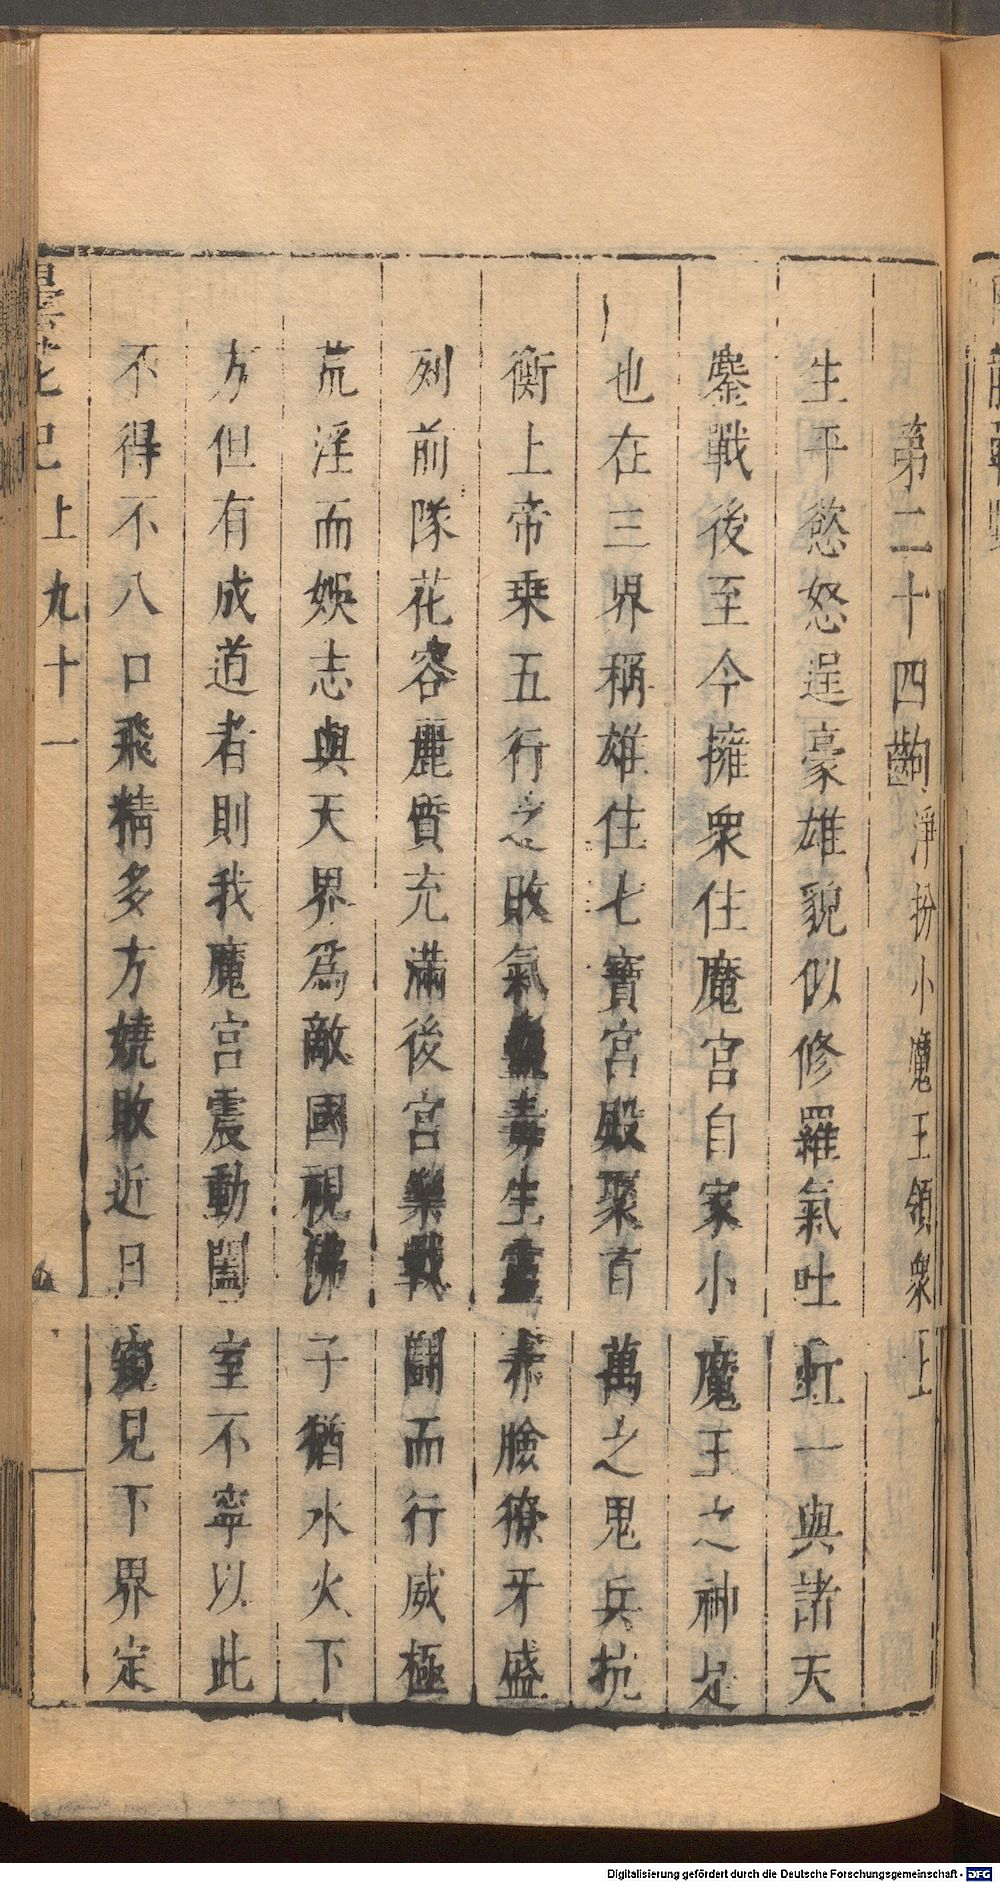 第二十四齣淨扮小魔王領衆上
生平慾怒逞豪雄貌似修羅氣吐虹一與諸天
鏖戰後至今擁衆住魔宮自家小魔王之神是
也在三界稱雄住七寶宮殿聚百萬之鬼兵抗
衡上帝乗五行之敗氣蠱毒生靈赤臉獠牙盛
列前隊花容麗質充滿後宮樂戰鬬而行威極
荒淫而娛志與天界爲敵國視佛子猶水火下
方但有成道者則我魔宮震動闔室不寧以此
不得不八口飛精多方嬈敗近日窺見下界定
曇花記上九十一
Digitalisierung gefördert durch die Deutsche Forschungsgemeinschaft - DFG